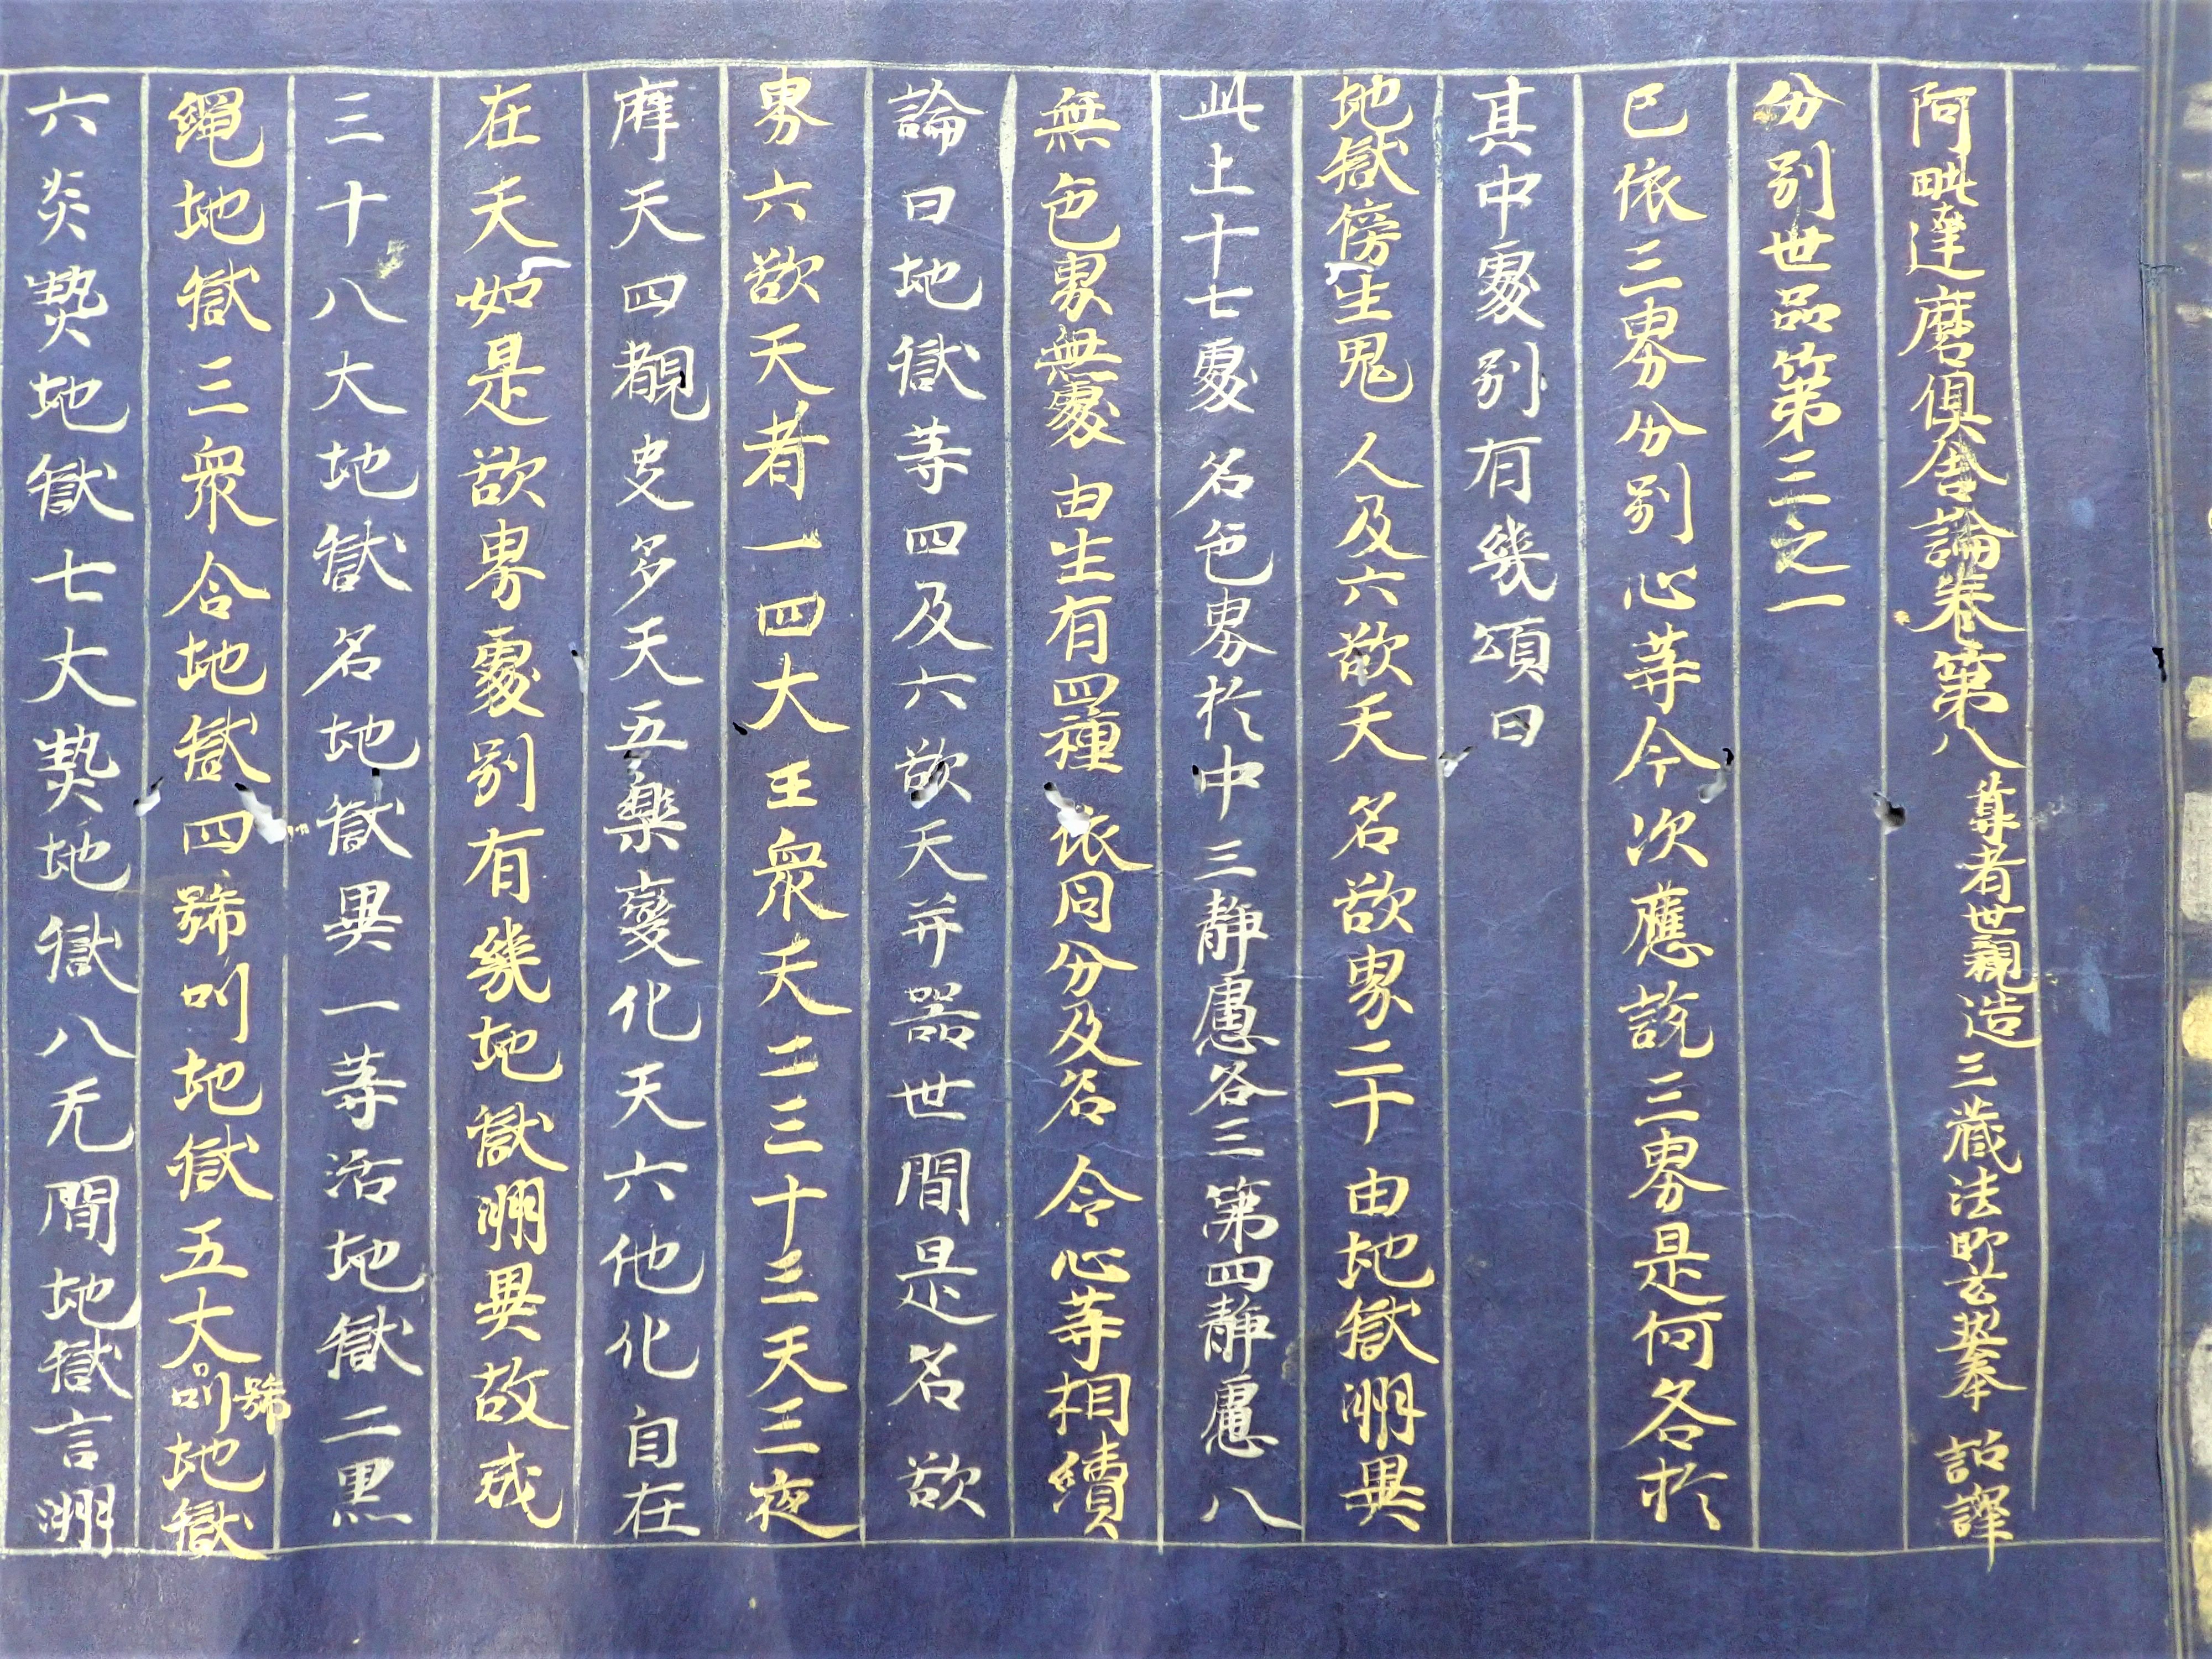 阿毗達磨俱舍論卷第八 尊者世親造 三藏法師玄奘奉 詔譯
分別世品第三之一
已依三界分別心等今次應說三界是何各於
其中處別有幾頌曰
地獄傍生鬼 人及六欲天 名欲界二十 由地獄洲異
此上十七處 名色界於中 三靜慮各三 第四靜慮八
無色界無處 由生有四種 依同分及命 令心等相續
論曰地獄等四及六欲天并器世間是名欲
界六欲天者一四大王眾天二三十三天三夜
摩天四覩史多天五樂變化天六他化自在
在天如是欲界處別有幾地獄洲異故成
三十八大地獄名地獄異一等活地獄二黑
繩地獄三眾合地獄四號叫地獄五大號叫地獄
六炎熱地獄七大熱地獄八无間地獄言洲